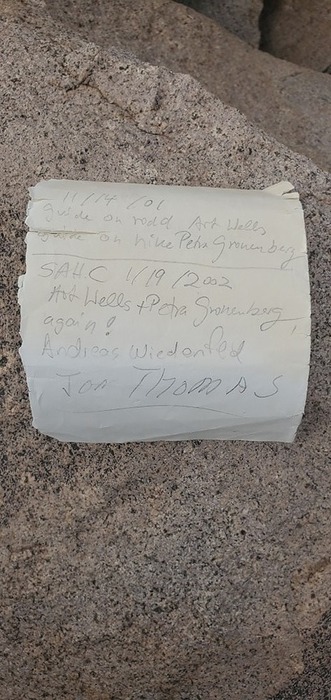 11/14/01
guide on road Art Wells
guide on hike Petra Gronenberg
SAHC 1/19/2002
Art Wells + Petra Gronenberg
again!
Andreas Wiedenfeld
Jon THOMAS